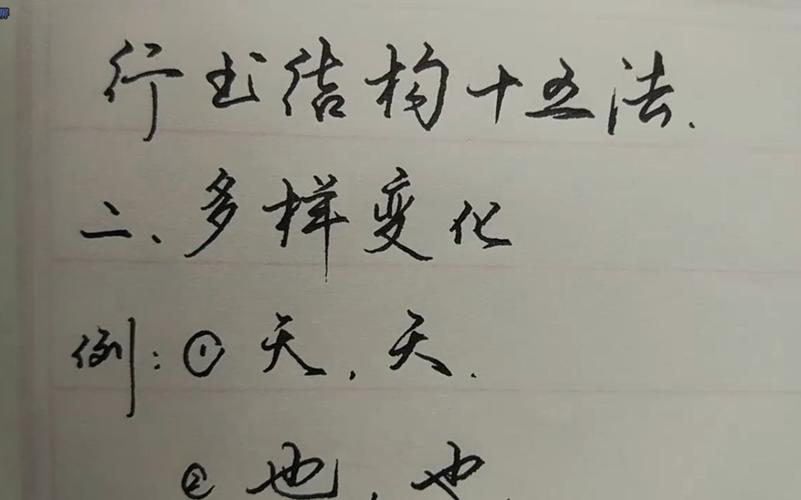 屏
行书结构十五法.
二、多样变化
例:①天,天.
②也,也